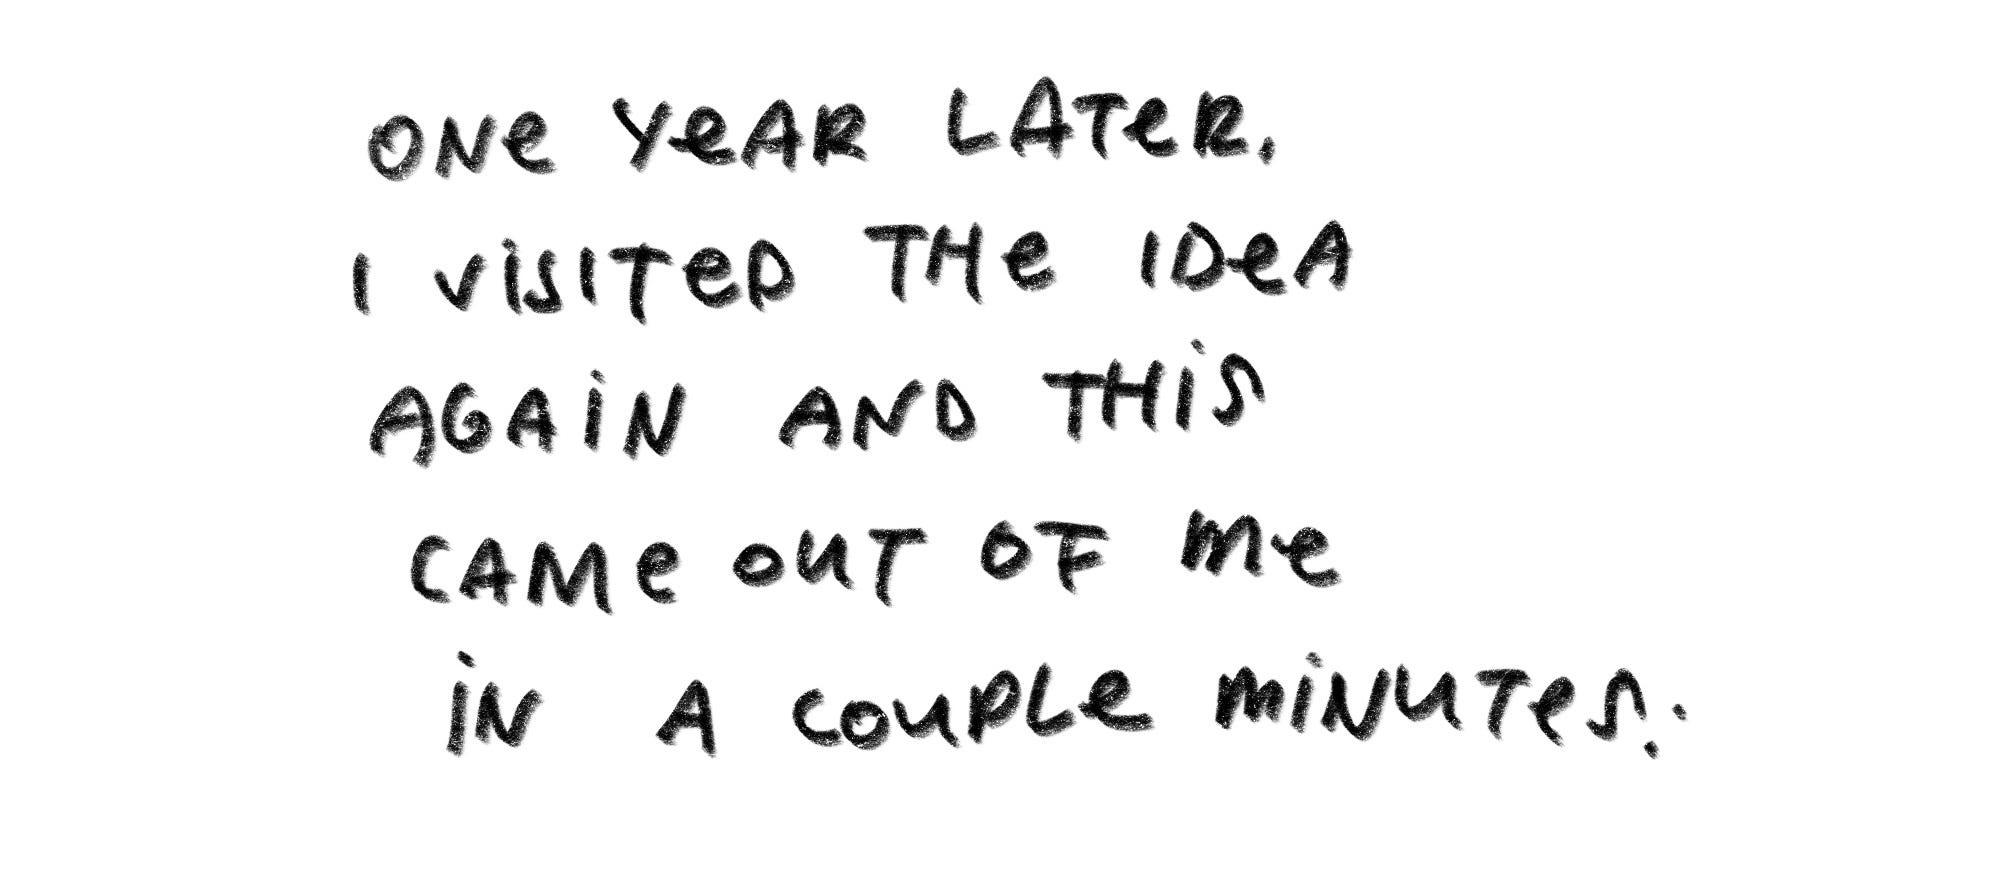 ONE YEAR LATER,
I VISITED THE IDEA
AGAIN AND THIS
CAME OUT OF ME
IN A COUPLE MINUTES.